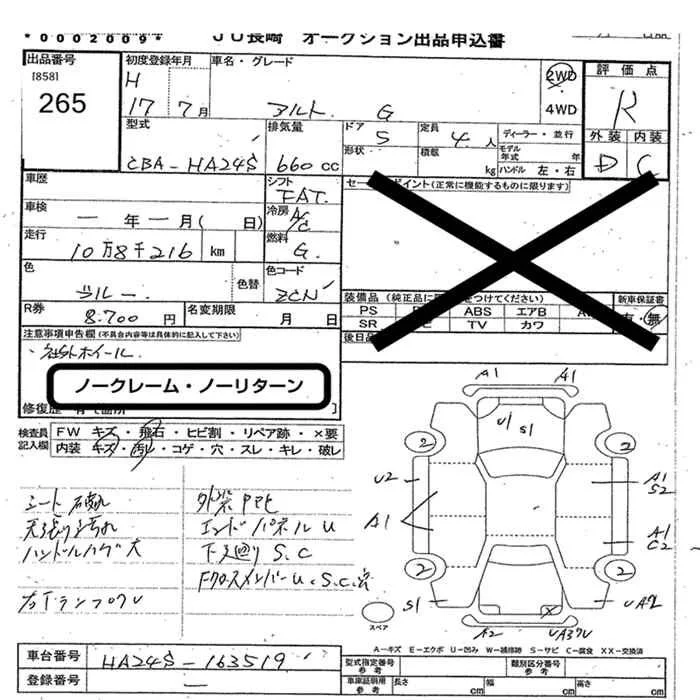 *0002009*
JU長崎 オークション出品申込書
出品番号
[858]
265
初度登録年月
H
17 7月
車名・グレード
アルト G
2WD
4WD
評価点
R
外装 内装
D C
型式
CBA-HA24S
排気量
660 cc
ドア 5
形状
定員 4 人
積載 kg
ディーラー・並行
モデル年式 年
ハンドル 左・右
車歴
シフト
FAT
車検
一 年 一 月 ( 日)
冷房
A/C
走行
10万8千216 km
燃料
G
色
ブルー
色替
色コード
ZCN
R券
8.700 円
名変期限
月 日
セールスポイント(正常に機能するものに限ります)
装備品 (純正品に
をつけてください)
新車保証書
PS
ABS エアB
有・無
SR
TV カワ
後日品
注意事項申告欄(不具合内容等は具体的に記入して下さい)
社外ホイール
ノークレーム・ノーリターン
修復歴
検査員記入欄
FW キズ・飛石・ヒビ割・リペア跡・×要
内装 キズ・汚レ・コゲ・穴・スレ・キレ・破レ
シート破れ
天張り汚れ
ハンドルハゲ大
エンドパネルU
下廻りS.C
A1 A1
U S1
2 2
U2 A1
S2
A1 A1
C2
2 2
S1
A2
スペア
A-キズ E-エクボ U-凹み W-補修跡 S-サビ C-腐食 XX-交換済
車台番号
HA24S-163519
登録番号
―
型式指定番号
参考
類別区分番号
参考
車庫証明用
参考
長さ cm
幅 cm
高さ cm